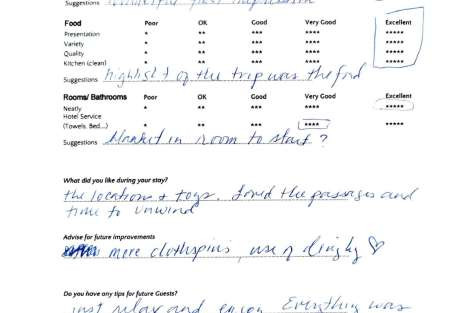 Suggestions
Food Poor OK Good Very Good Excellent
Presentation * ** *** **** *****
Variety * ** *** **** *****
Quality * ** *** **** *****
Kitchen (clean) * ** *** **** *****
Suggestions highlight of the trip was the food
Rooms/ Bathrooms Poor OK Good Very Good Excellent
Neatly * ** *** **** *****
Hotel Service
(Towels, Bed...) * ** *** **** *****
Suggestions blanket in room to start?
What did you like during your stay?
the locations + toys. Loved the passages and
time to unwind
Advise for future improvements
more clothspins, use of dinghy ♡
Do you have any tips for future Guests?
just relax and enjoy Everything was